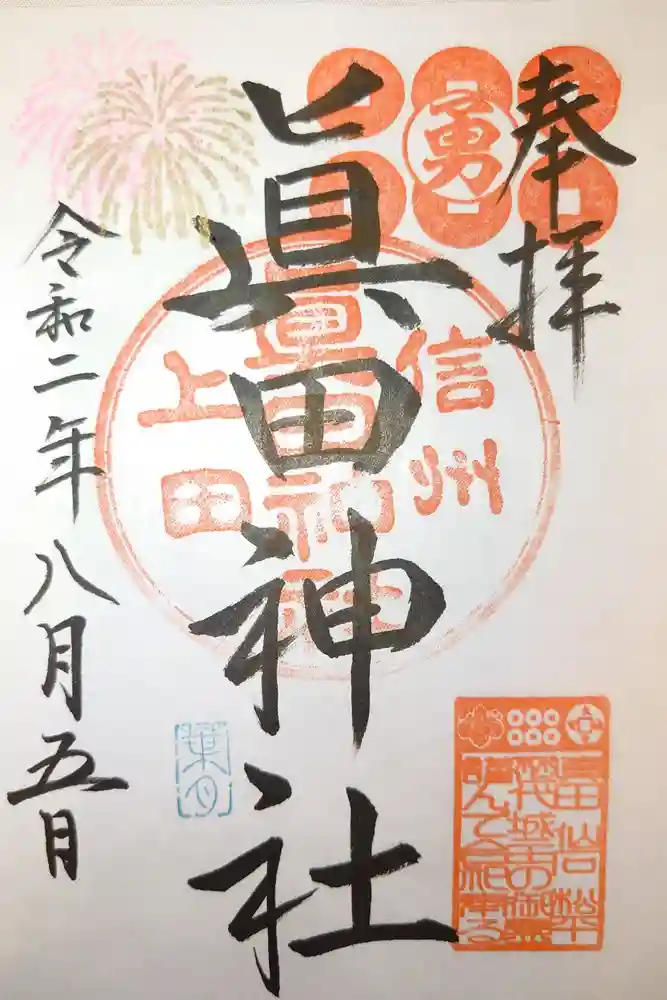 奉拝
勇
眞田神社
信州
眞田神社
上田
葉月
令和二年八月五日